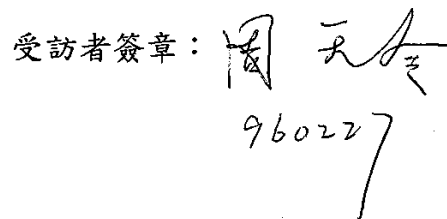 受訪者簽章：周天令
960227